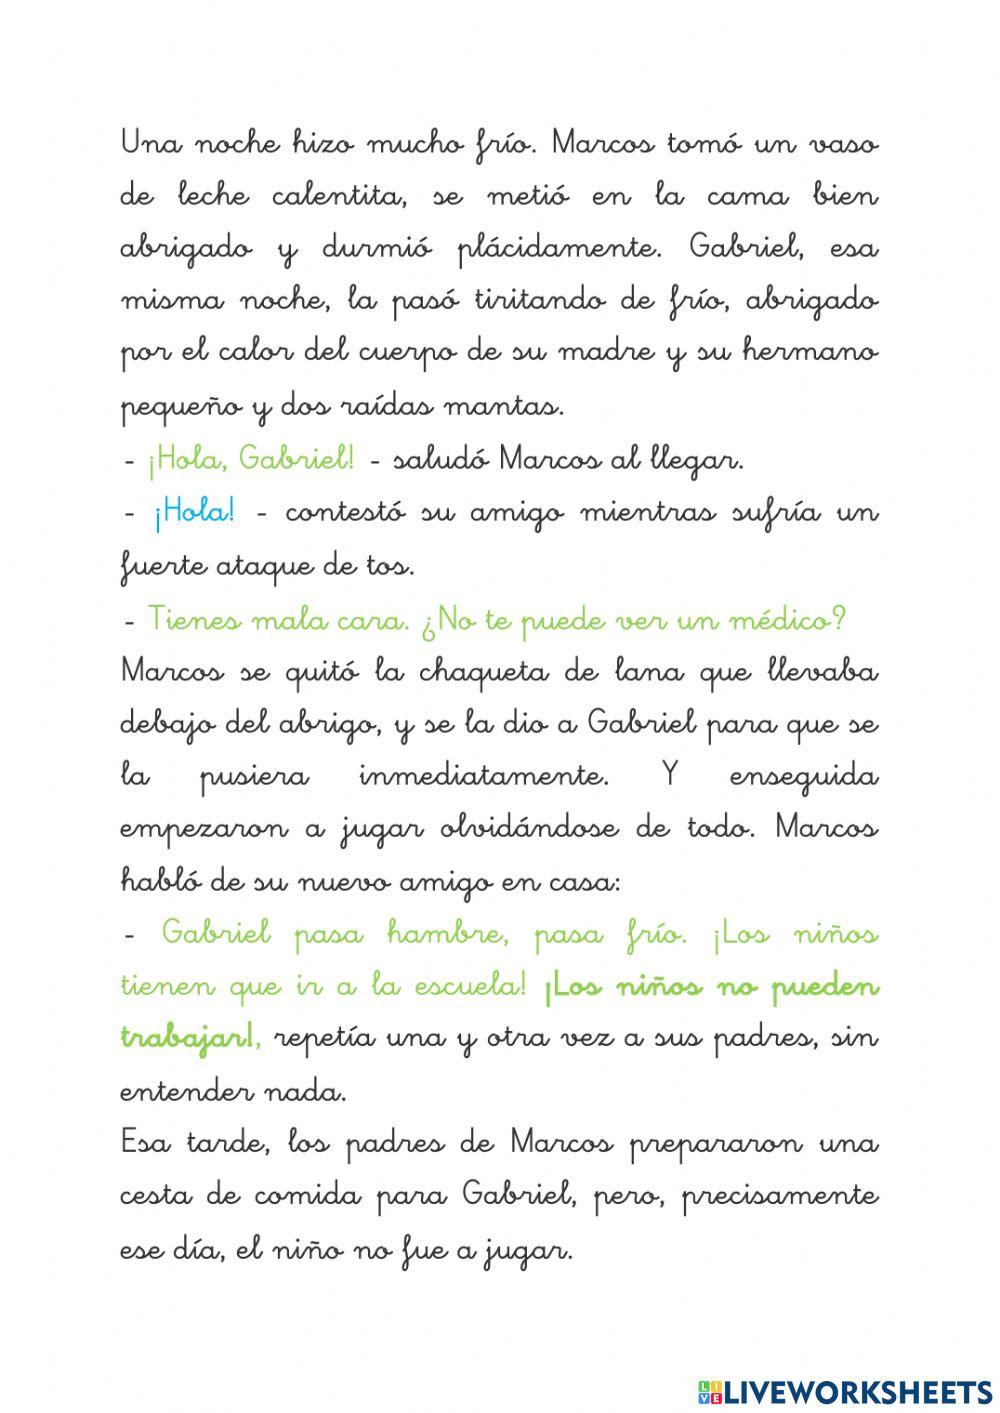 Una noche hizo mucho frío. Marcos tomó un vaso
de leche calentita, se metió en la cama bien
abrigado y durmió plácidamente. Gabriel, esa
misma noche, la pasó tiritando de frío, abrigado
por el calor del cuerpo de su madre y su hermano
pequeño y dos raídas mantas.
- ¡Hola, Gabriel! - saludó Marcos al llegar.
- ¡Hola! - contestó su amigo mientras sufría un
fuerte ataque de tos.
- Tienes mala cara. ¿No te puede ver un médico?
Marcos se quitó la chaqueta de lana que llevaba
debajo del abrigo, y se la dio a Gabriel para que se
la pusiera inmediatamente. Y enseguida
empezaron a jugar olvidándose de todo. Marcos
habló de su nuevo amigo en casa:
- Gabriel pasa hambre, pasa frío. ¡Los niños
tienen que ir a la escuela! ¡Los niños no pueden
trabajar!, repetía una y otra vez a sus padres, sin
entender nada.
Esa tarde, los padres de Marcos prepararon una
cesta de comida para Gabriel, pero, precisamente
ese día, el niño no fue a jugar.
LIVE LIVEWORKSHEETS